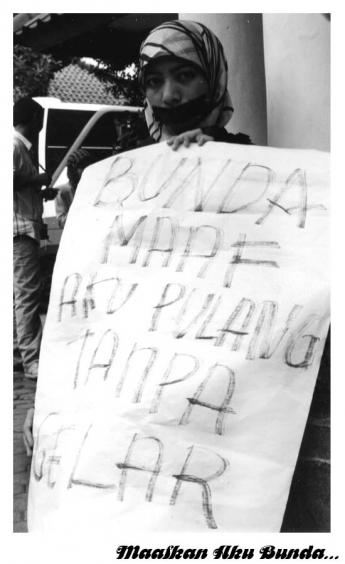 BUNDA
MAAF
AKU PULANG
TANPA
GELAR
Maafkan Aku Bunda...